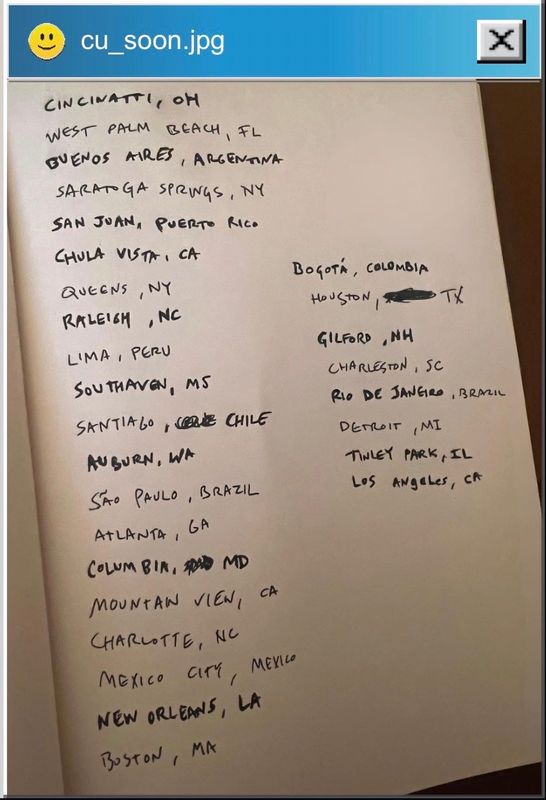 cu_soon.jpg
CINCINATTI, OH
WEST PALM BEACH, FL
BUENOS AIRES, ARGENTINA
SARATOGA SPRINGS, NY
SAN JUAN, PUERTO RICO
CHULA VISTA, CA
QUEENS, NY
RALEIGH, NC
LIMA, PERU
SOUTHAVEN, MS
SANTIAGO, CHILE
AUBURN, WA
SÃO PAULO, BRAZIL
ATLANTA, GA
COLUMBIA, MD
MOUNTAIN VIEW, CA
CHARLOTTE, NC
MEXICO CITY, MEXICO
NEW ORLEANS, LA
BOSTON, MA
BOGOTÁ, COLOMBIA
HOUSTON, TX
GILFORD, NH
CHARLESTON, SC
RIO DE JANEIRO, BRAZIL
DETROIT, MI
TINLEY PARK, IL
LOS ANgeleS, CA